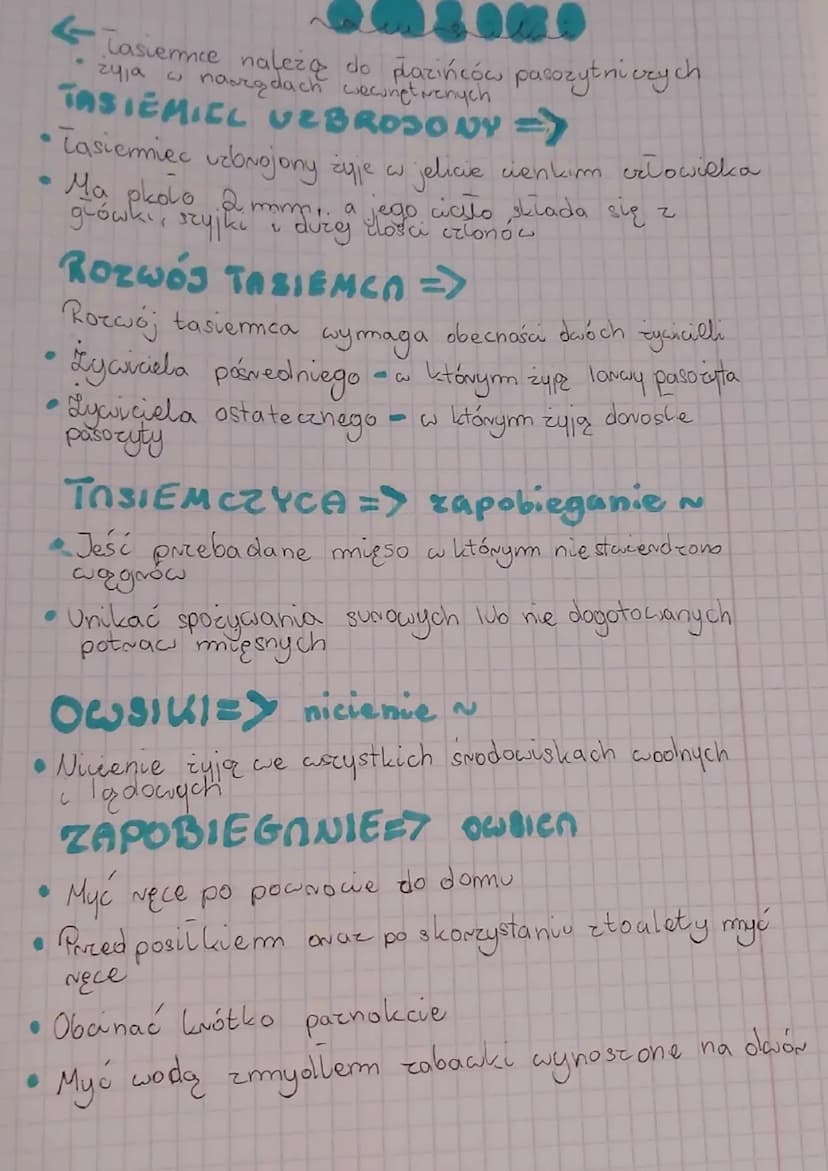 ← Tasiemce należą do płazińców pasożytniczych
• żyją w narządach wewnętrznych
TASIEMIEC UZBROJONY =>
• Tasiemiec uzbrojony żyje w jelicie cienkim człowieka
• Ma około 2 mm, a jego ciało składa się z
główki, szyjki i dużej ilości członów
ROZWÓJ TASIEMCA =>
Rozwój tasiemca wymaga obecności dwóch żywicieli
• Żywiciela pośredniego - w którym żyje larwy pasożyta
• Żywiciela ostatecznego - w którym żyją dorosłe
pasożyty
TASIEMCZYCA => zapobieganie ~
• Jeść przebadane mięso w którym nie stwierdzono
wągrów
• Unikać spożywania surowych lub nie dogotowanych
potraw mięsnych
OWSIKI => nicienie ~
• Nicienie żyją we wszystkich środowiskach wodnych
i lądowych
ZAPOBIEGANIE => OWSICA
• Myć ręce po powrocie do domu
• Przed posiłkiem oraz po skorzystaniu z toalety myć
ręce
• Obcinać krótko paznokcie
• Myć wodą z mydłem zabawki wynoszone na dwór